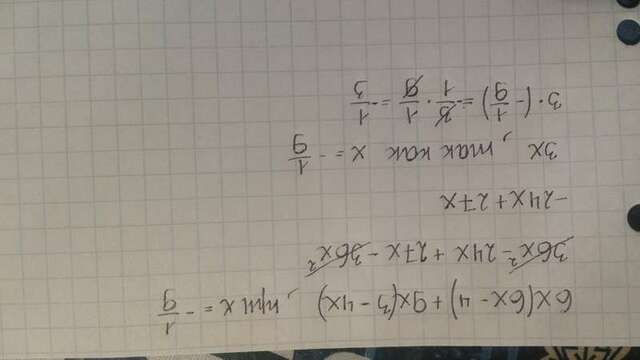 6x(6x - 4) + 9x(3 - 4x) , при x = - 1/9
36x² - 24x + 27x - 36x²
- 24x + 27x
3x , так как x = - 1/9
3 · (- 1/9) = - 3/1 · 1/9 = - 1/3